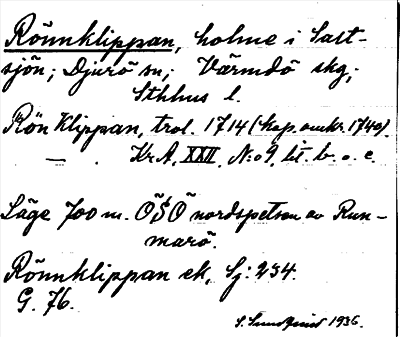 Rönnklippan, holme i Salt-
sjön; Djurö sn; Värmdö skg;
Sthlms l.
Rön Klippan, trol. 1714 (kop. omkr. 1740).
— . KrA, XXII, N:o 9, lit. b. o. c.
Läge 700 m. ÖSÖ nordspetsen av Run-
marö.
Rönnklippan ek, Sj: 234.
G. 76.
S. Sundqvist 1936.